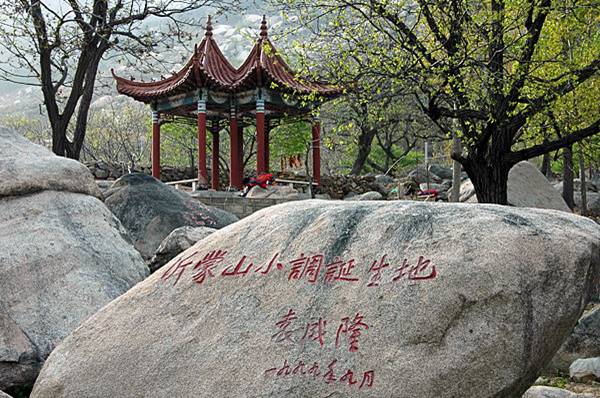 沂蒙山小調誕生地
袁成隆
一九九九年九月